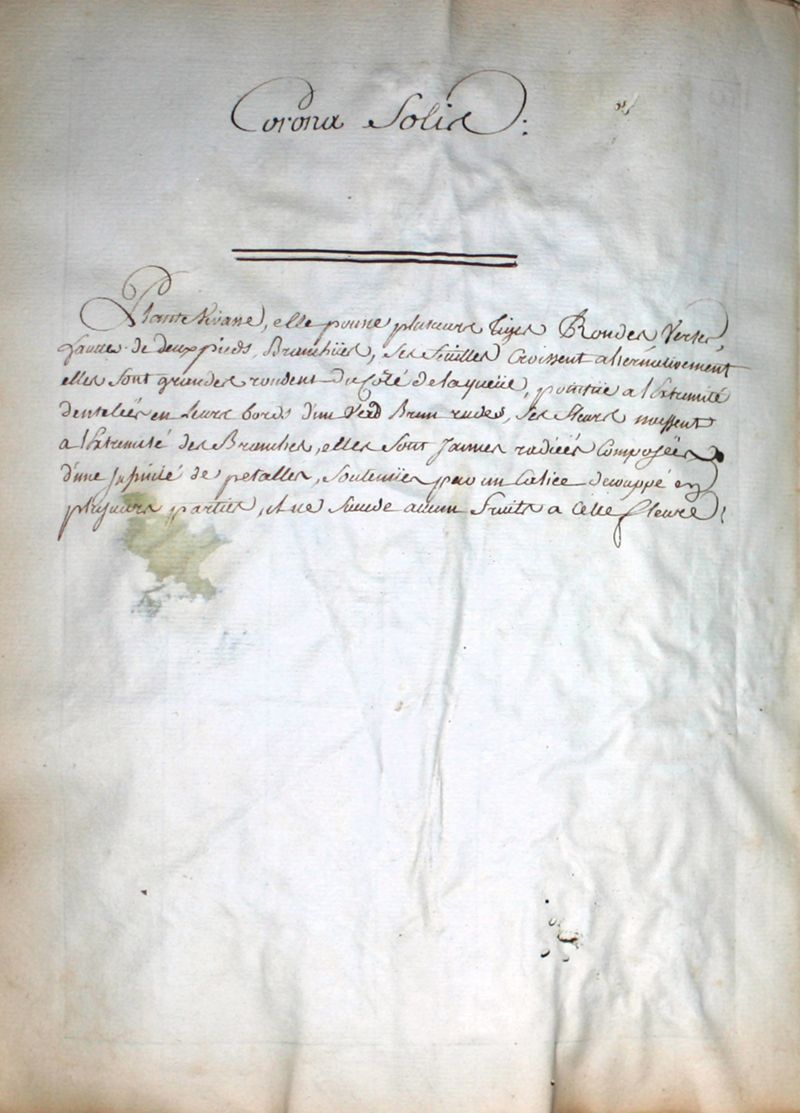 Corona Solis:
Plante Vivace, elle pousse plusieurs Tiges Rondes Vertes,
hautes de deux pieds, Branchües, ses feüilles Croissent alternativement
elles sont grandes rondent du Côté de la queüe, pointüe a l'Extremité
dentelées en leurs bords d'un Verd Brun rudes, ses fleurs naissent
a l'Extremité des Branches, elles sont Jaunes radiées Composées
d'une Infinité de petalles, soutenües par un Calice decouppé en
plusieurs parties, et ne succede aucun fruits a cette fleure